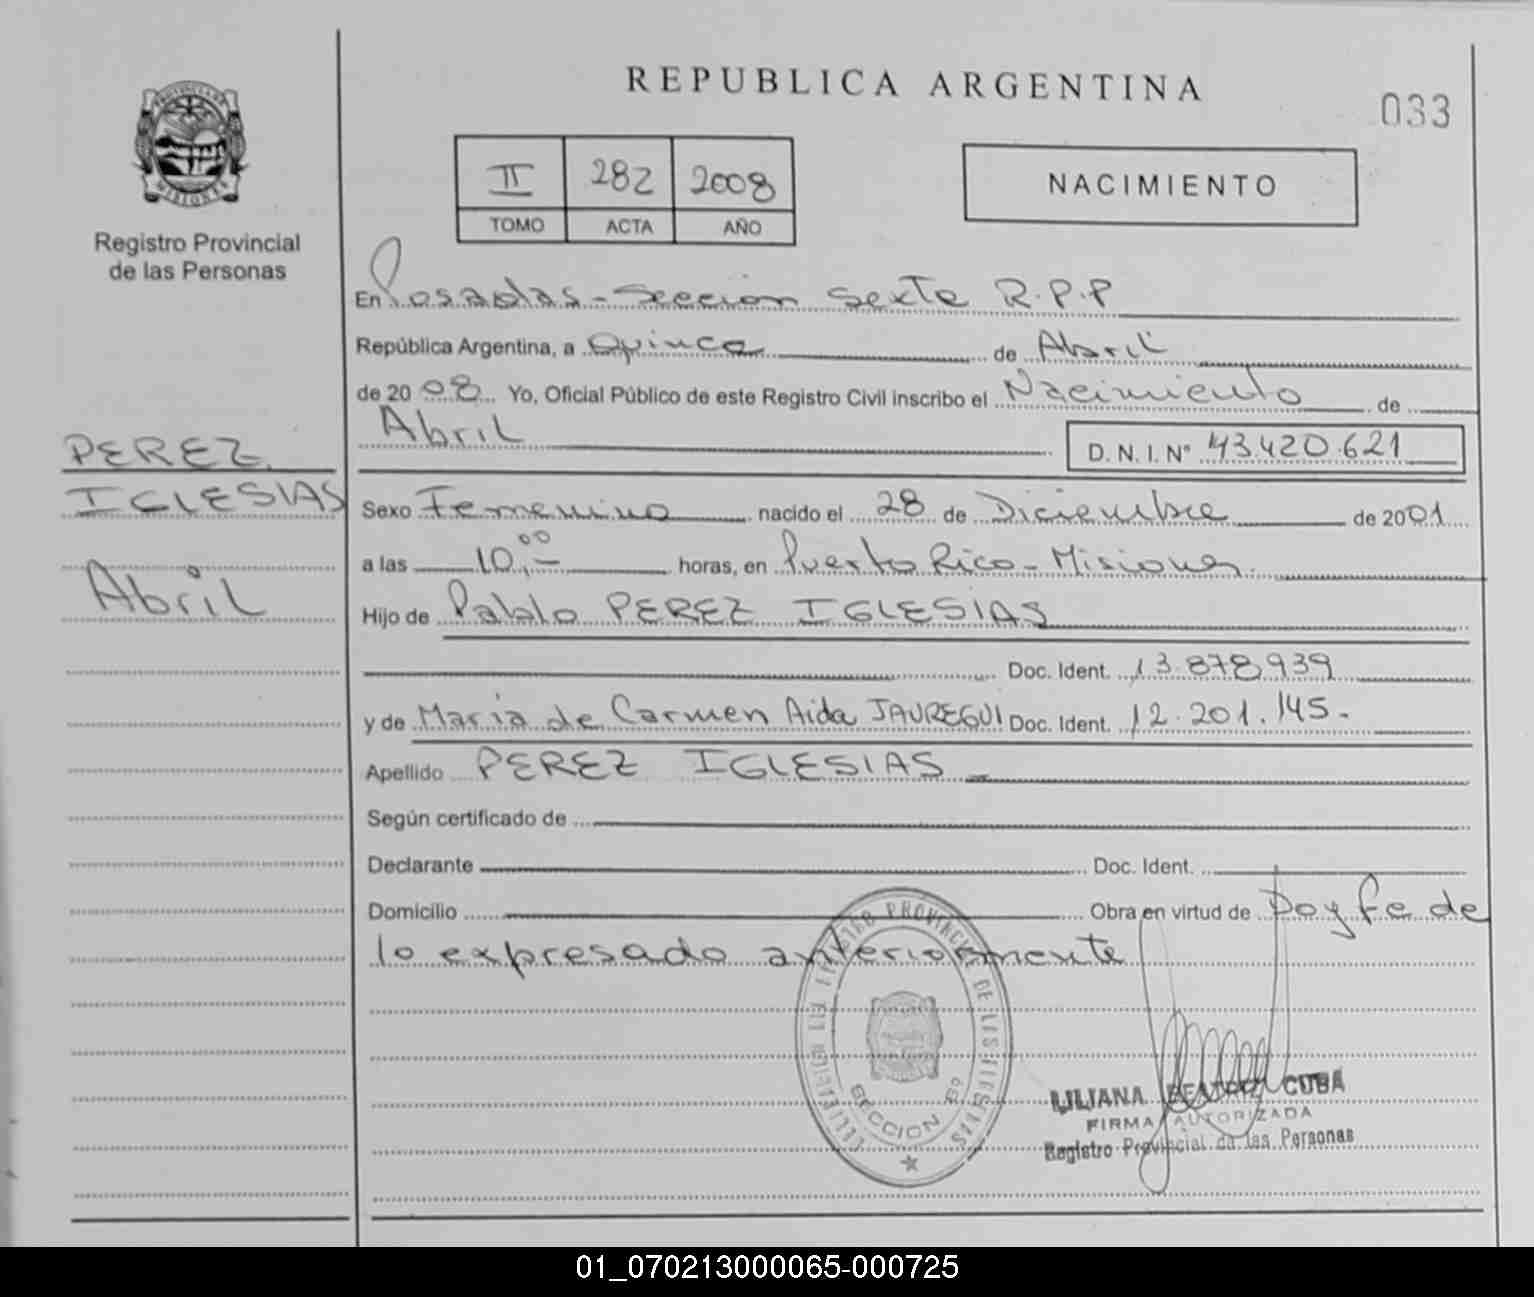 REPUBLICA ARGENTINA
033
PROVINCIA DE
MISIONES
Registro Provincial
de las Personas
II 282 2008
TOMO ACTA AÑO
NACIMIENTO
En Posadas - Seccion Sexta R.P.P
República Argentina, a Quince de Abril
de 2008 Yo, Oficial Público de este Registro Civil inscribo el Nacimiento de
Abril
D. N. I. Nº 43.420.621
PEREZ
IGLESIAS
Abril
Sexo Femenino nacido el 28 de Diciembre de 2001
a las 10,00- horas, en Puerto Rico - Misiones
Hijo de Pablo PEREZ IGLESIAS
Doc. Ident. 13.878.939
y de Maria de Carmen Aida JAUREGUI Doc. Ident. 12.201.145.-
Apellido PEREZ IGLESIAS -
Según certificado de
Declarante Doc. Ident.
Domicilio Obra en virtud de Doy fe de
lo expresado anteriormente
PROVINCIAL DE LAS
SECCION 6º
LILIANA BEATRIZ CUBA
FIRMA AUTORIZADA
Registro Provincial de las Personas
01_070213000065-000725